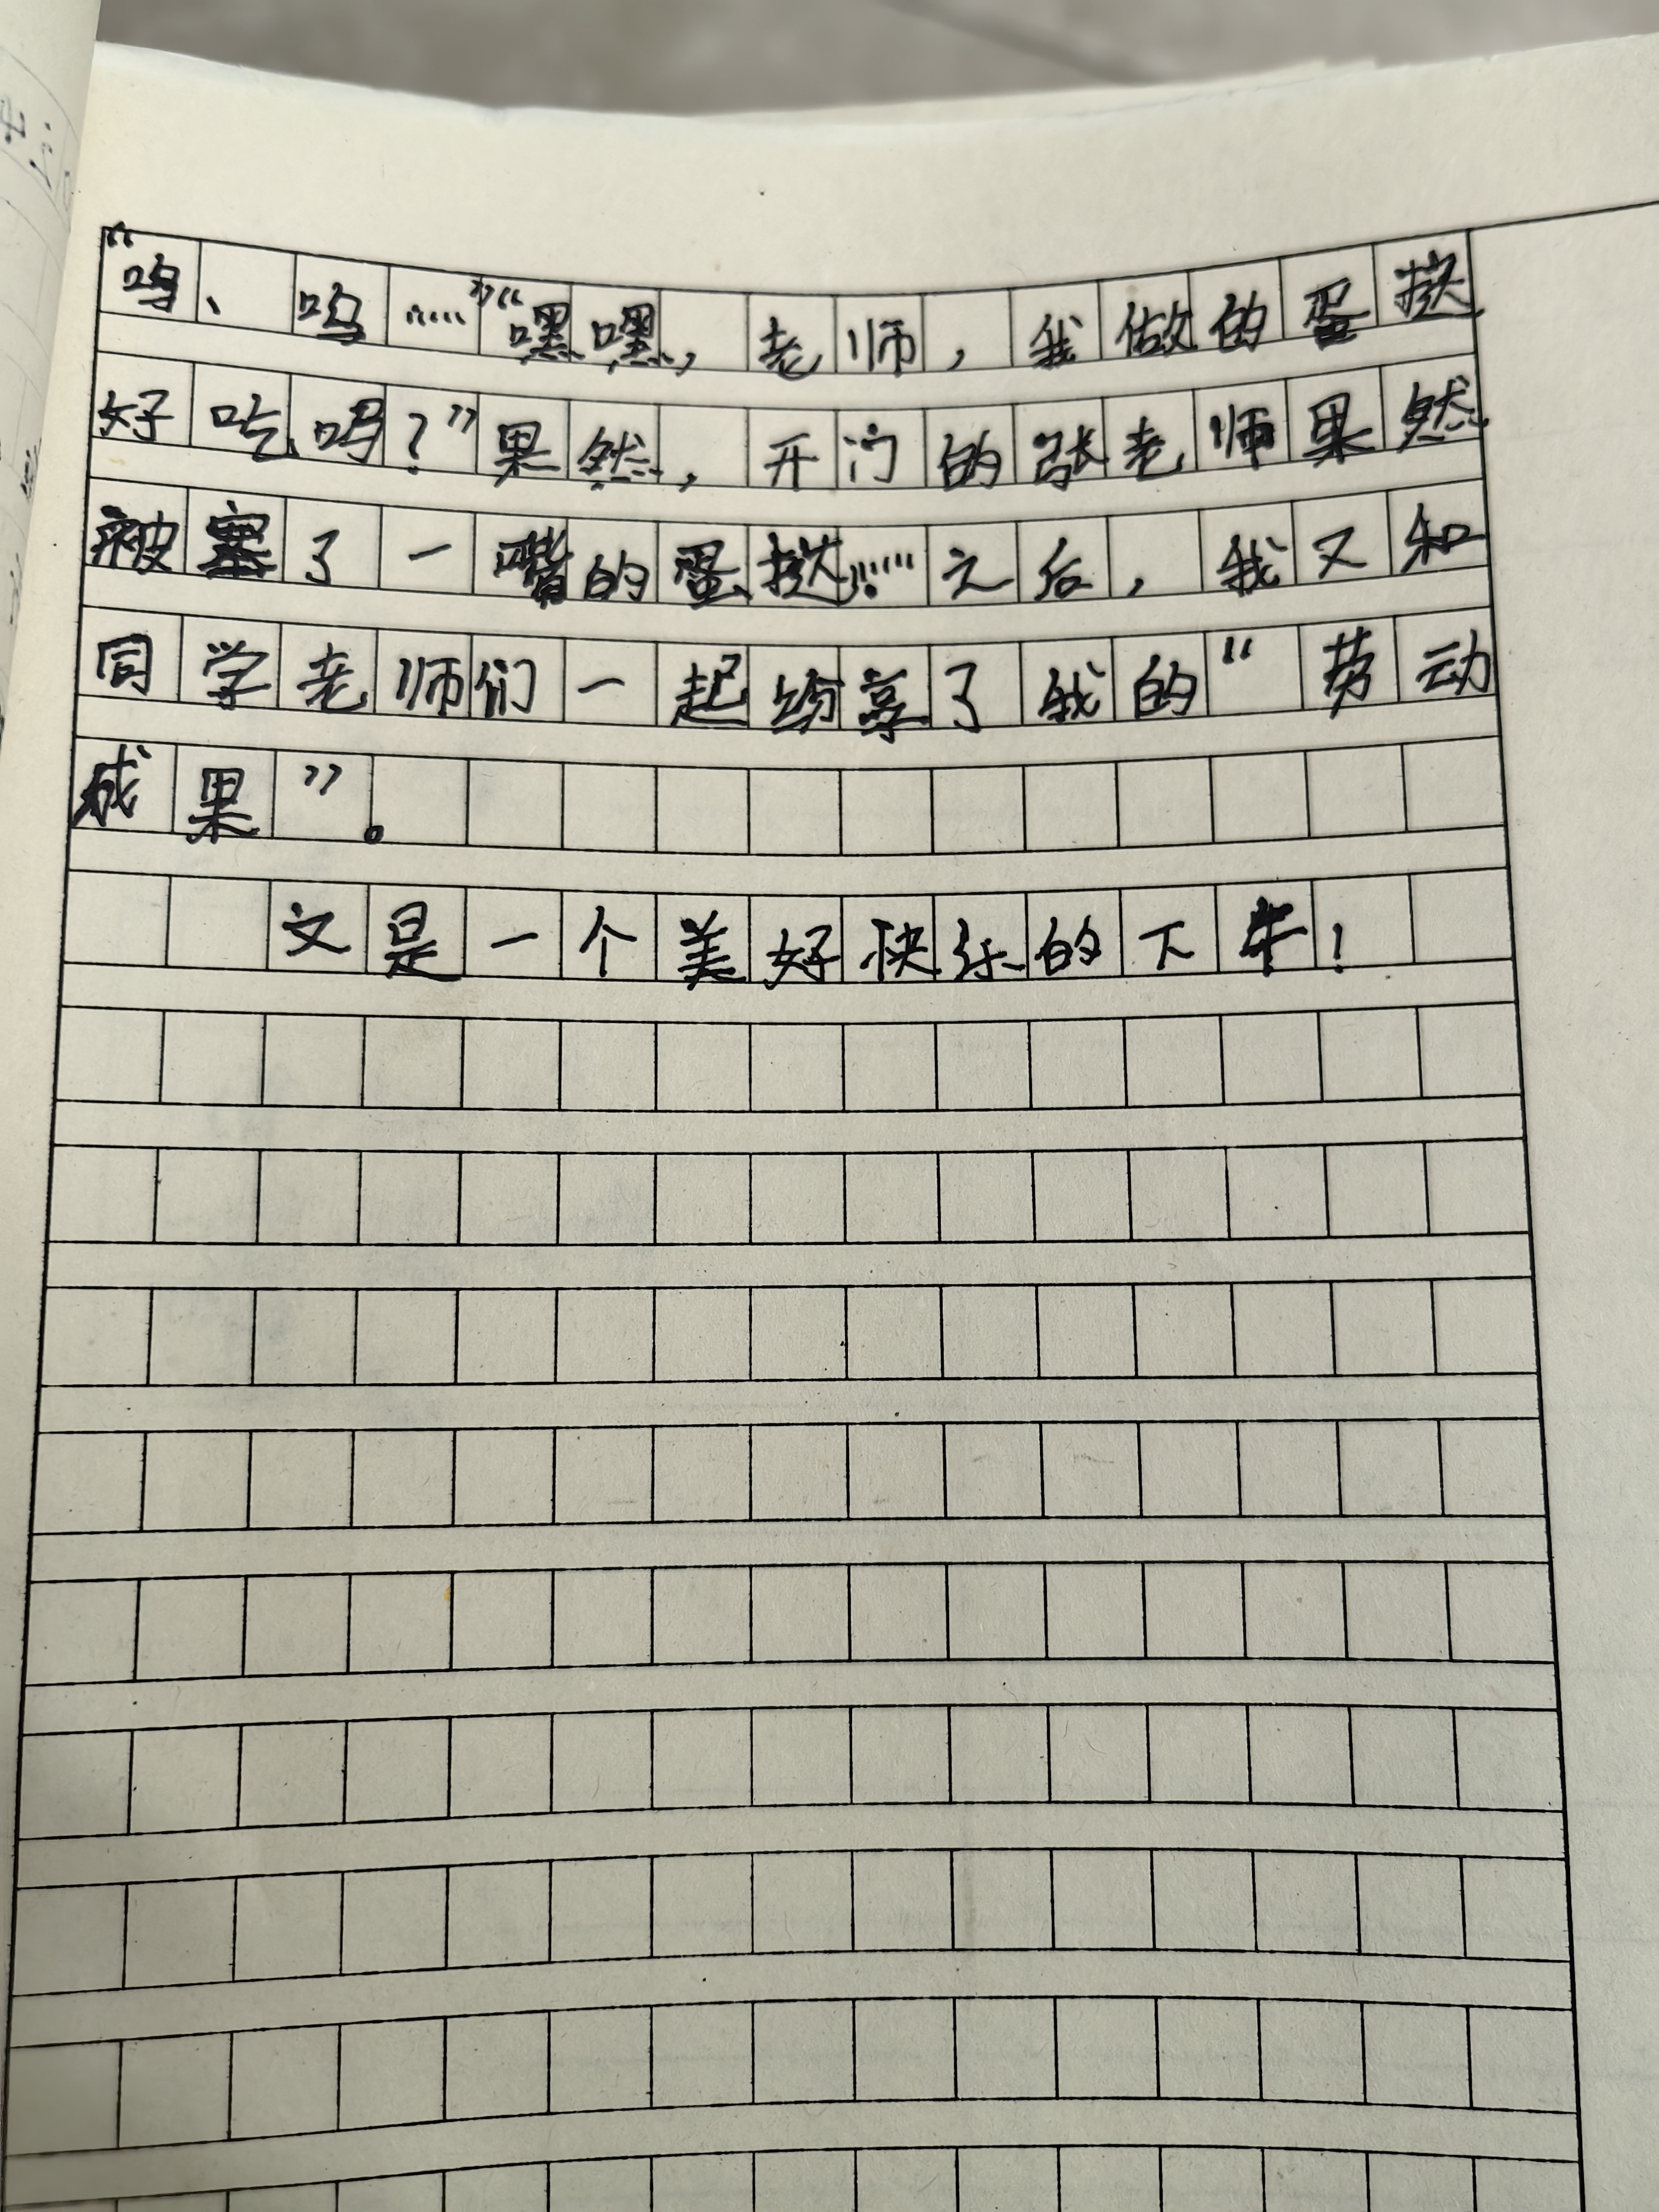 “呜、呜……”“嘿嘿，老师，我做的蛋挞
好吃吗？”果然，开门的张老师果然
被塞了一嘴的蛋挞……之后，我又和
同学老师们一起纷享了我的“劳动
成果”。
又是一个美好快乐的下午！